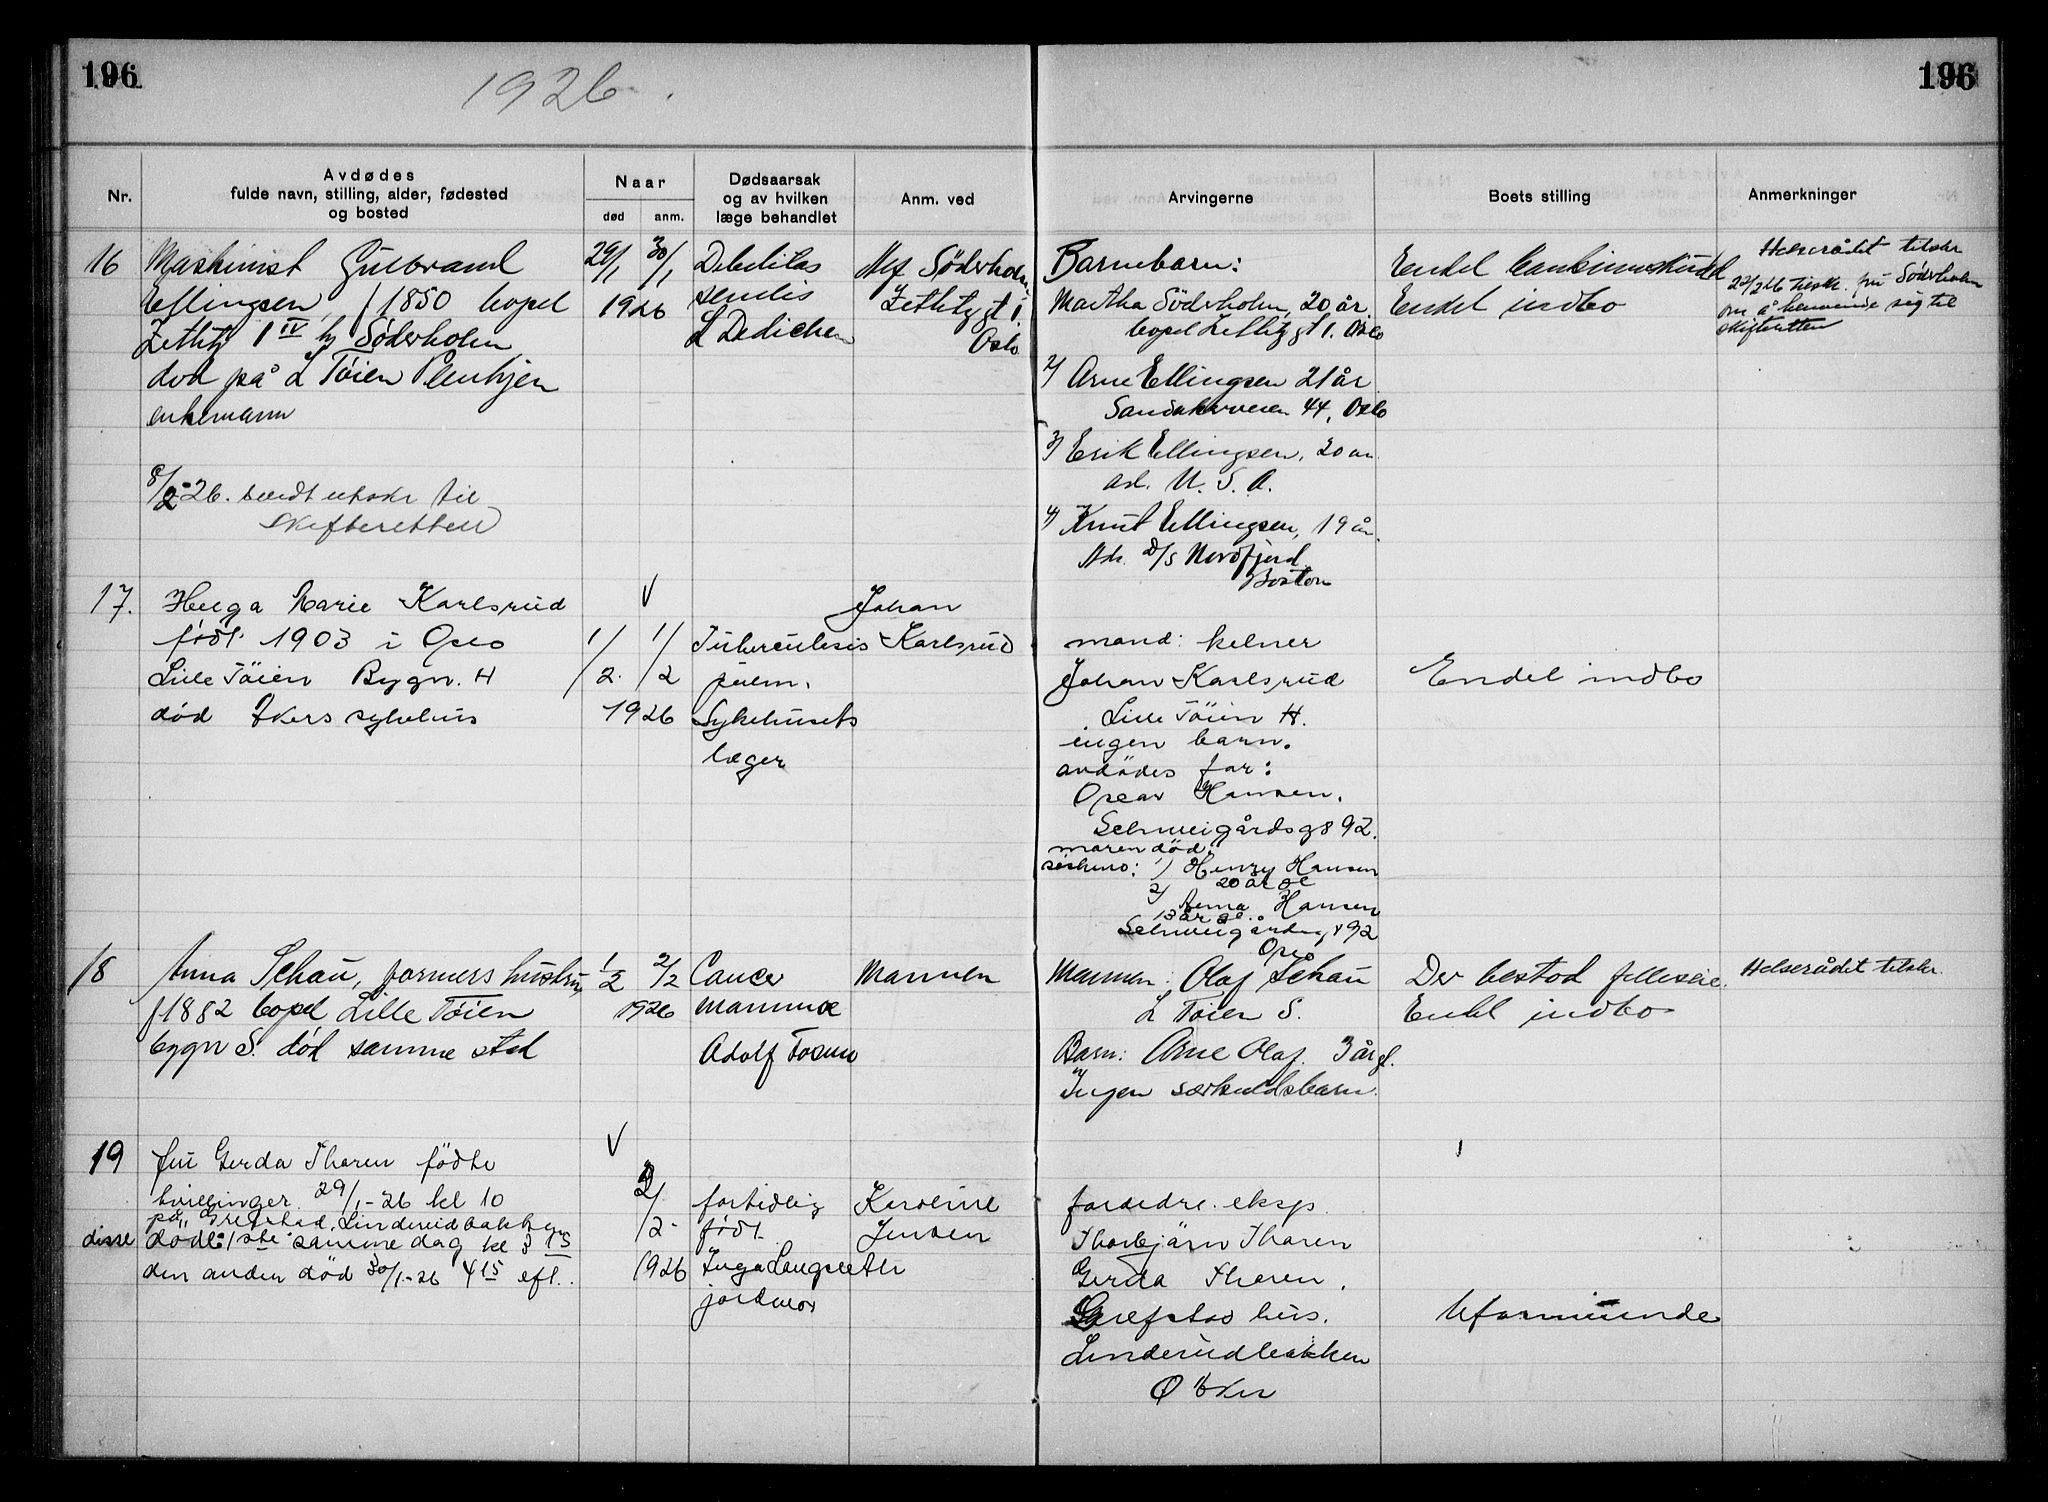 196
196
1926.
Nr.
Avdødes
fulde navn, stilling, alder, fødested
og bosted
Naar
død
anm.
Dødsaarsak
og av hvilken
læge behandlet
Anm. ved
Arvingerne
Boets stilling
Anmerkninger
16
Maskinist Gulbrand
Ellingsen, f 1850 bopel
Zetlitz 1 IV hj Søderholm
død på L Tøien Pleiehjem
enkemann
8/2-26. sendt utskr til
Skifteretten
29/1 30/1
1926
Debilitas
senilis
L Dedichen
Alf Söderholm
Zetlitzgt 1.
Oslo
Barnebarn:
Martha Söderholm, 20 år.
bopel Zetlitzgt 1. Oslo
2/ Arne Ellingsen 21 år
Sandakerveien 44, Oslo
3/ Erik Ellingsen, 20 år.
ad. U. S. A.
4/ Knut Ellingsen, 19 år.
Adr. D/S Nordfjord
Boston
Endel bankinnskudd
Endel indbo
Helserådet tilskr
22/2 26 tilskr. fru Söderholm
om å henvende sig til
skifteretten
17.
Helga Marie Karlsrud
født 1903 i Oslo
Lille Töien Bygn. H
død Akers sykehus
V
1/2. 1/2
1926
Tuberculosis
pulm.
Sykehusets
læger
Johan
Karlsrud
mand: kelner
Johan Karlsrud
Lille Töien H.
ingen barn.
avdödes far:
Oscar Hansen.
Schweigårdsg 92.
moren död.
sösken: 1) Henry Hansen
20 år gl
2) Anna Hansen
13 år gl.
Schweigårdsg 92
Oslo
Endel indbo
18
Anna Schau, formers hustru,
f 1882 bopel Lille Tøien
bygn S. død samme sted
1/2 2/2
1926
Cancer
mammæ
Adolf
Mannen
Mannen: Olaf Schau
L Tøien S.
Barn: Arne Olaf. 3 år gl.
Ingen særkuldsbarn.
Der bestod felleseie.
Endel indbo
Helserådet tilskr.
19
fru Gerda Tharen födte
tvillinger 29/1-26 kl 10
på Grefstad, Linderudbakken
disse döde: 1ste samme dag kl 3 15
den anden död 30/1-26 4 15 eft.
V
2/2-
1926
fortidlig
født
Inga
jordmor
Karoline
Jensen
foreldre. eksp.
Thorbjörn Tharen
Gerda Tharen,
Grefstad hus.
Linderudbakken
Ø Aker
Uformuende